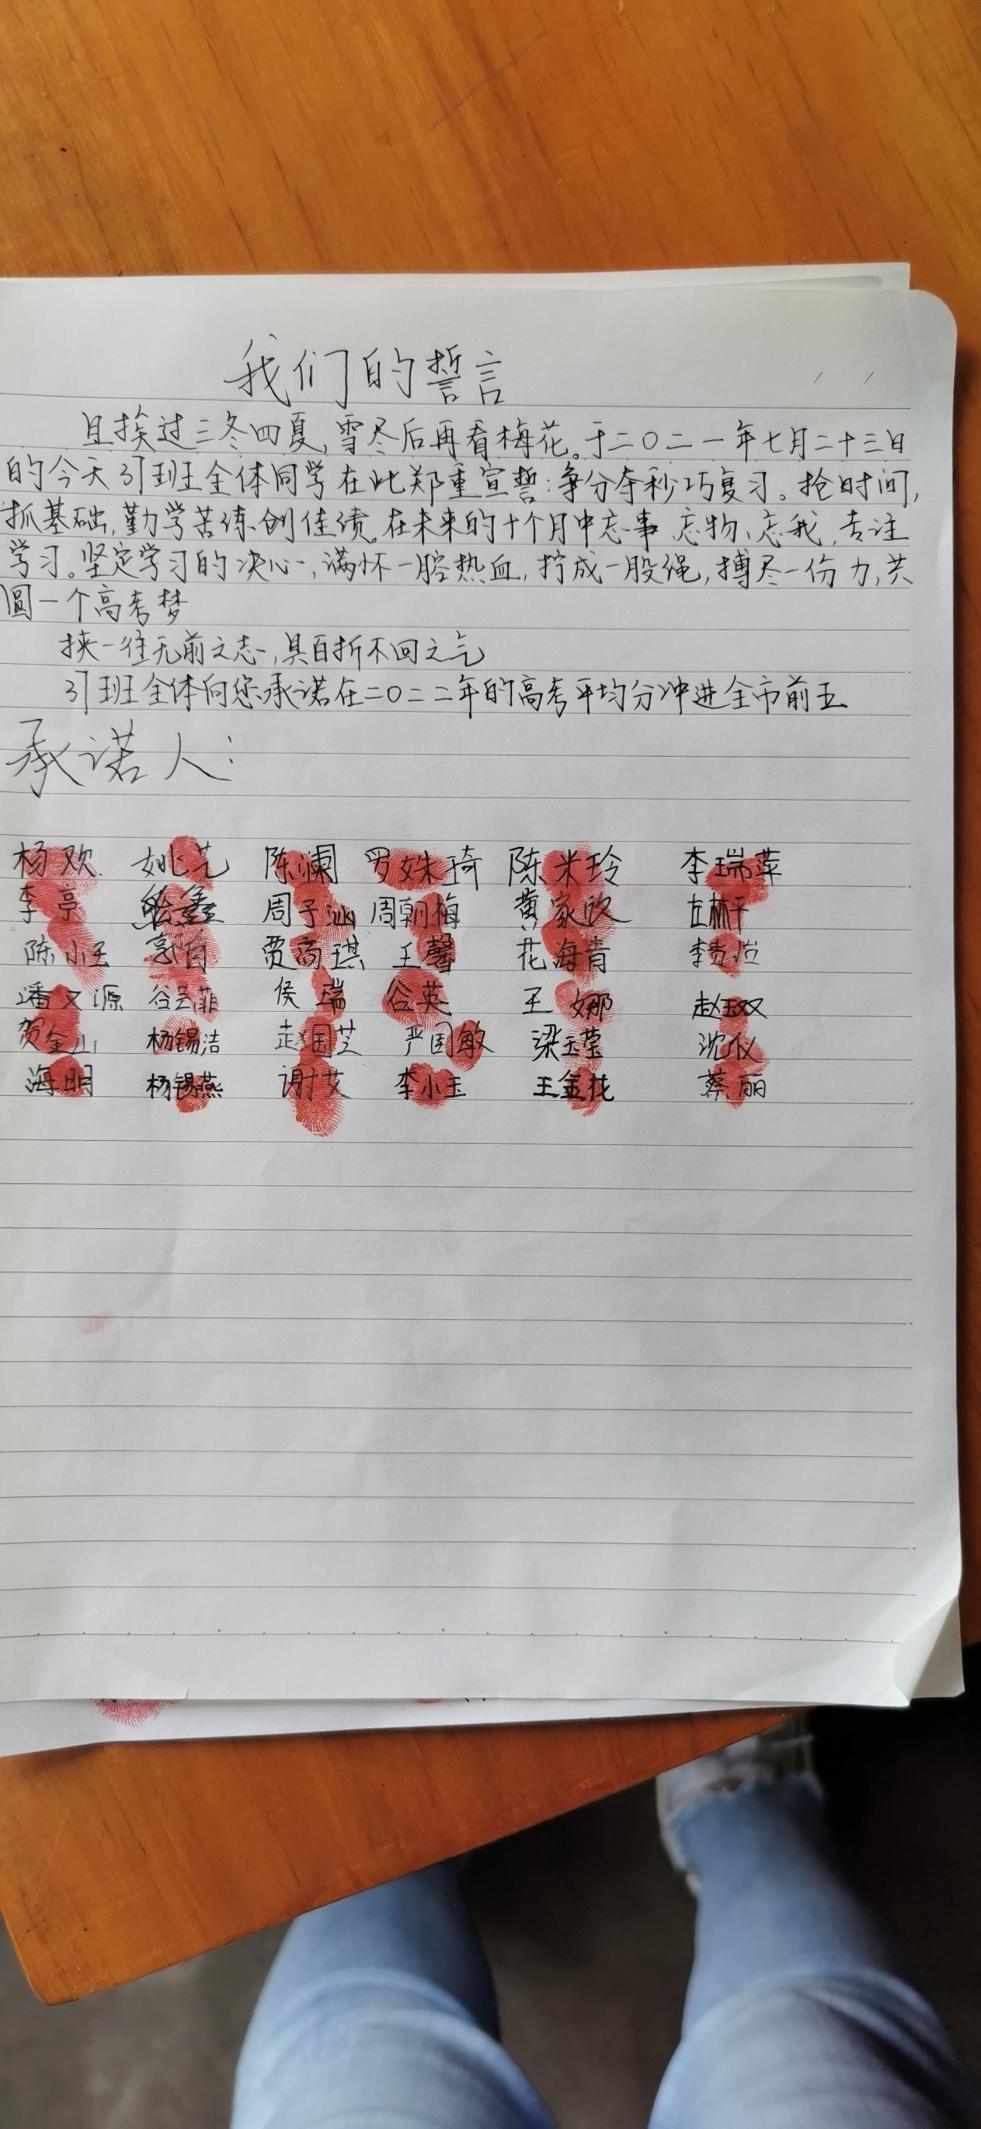 我们的誓言
且挨过三冬四夏,雪尽后再看梅花。于二〇二一年七月二十三日
的今天引班全体同学在此郑重宣誓:争分夺秒巧复习。抢时间,
抓基础,勤学苦练创佳绩。在未来的十个月中忘事、忘物、忘我,专注
学习。坚定学习的决心,满怀一腔热血,拧成一股绳,搏尽一份力,共
圆一个高考梦
挟一往无前之志,具百折不回之气
引班全体向您承诺在二〇二二年的高考平均分冲进全市前五
承诺人:
杨欢 姚艺 陈澜 罗姝琦 陈米玲 李瑞萍
李亭 鑫 周予汕 周朝梅 黄家欣 左林平
陈小玉 贾商琪 王馨 花海青
潘文源 侯瑞 谷英 王娜 赵双
贺金山 杨锡洁 赵国芝 严国敏 梁玉莹 沈仪
海明 杨锡燕 谢艾 李小玉 王金花 蔡丽